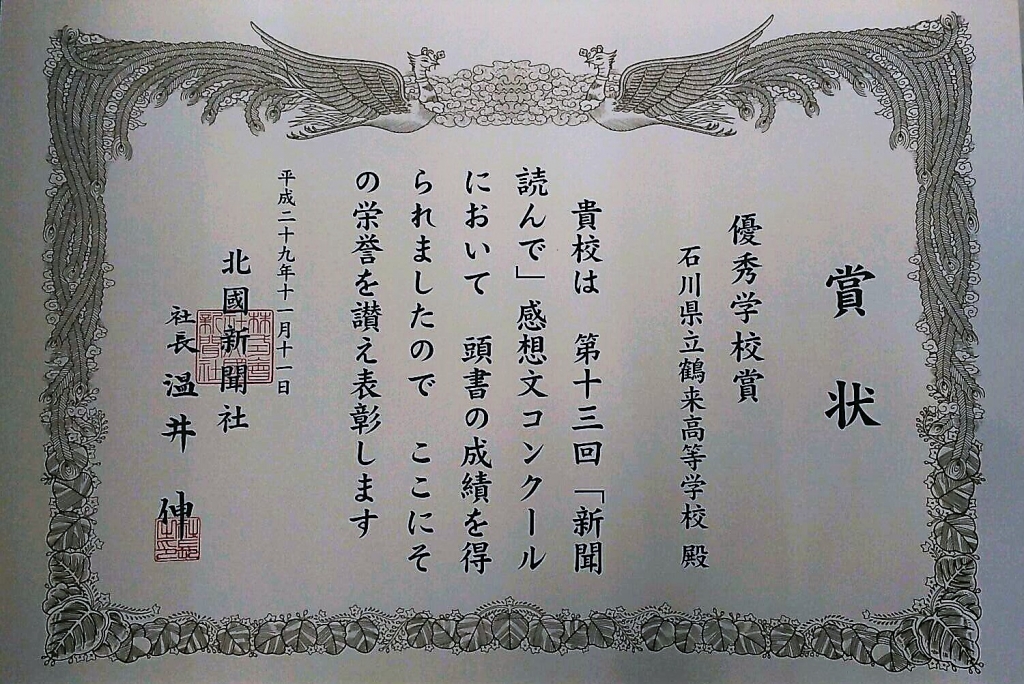 賞状
優秀学校賞
石川県立鶴来高等学校 殿
貴校は 第十三回「新聞
読んで」感想文コンクール
において 頭書の成績を得
られましたので ここにそ
の栄誉を讃え表彰します
平成二十九年十一月十一日
北國新聞社
社長 温井 伸